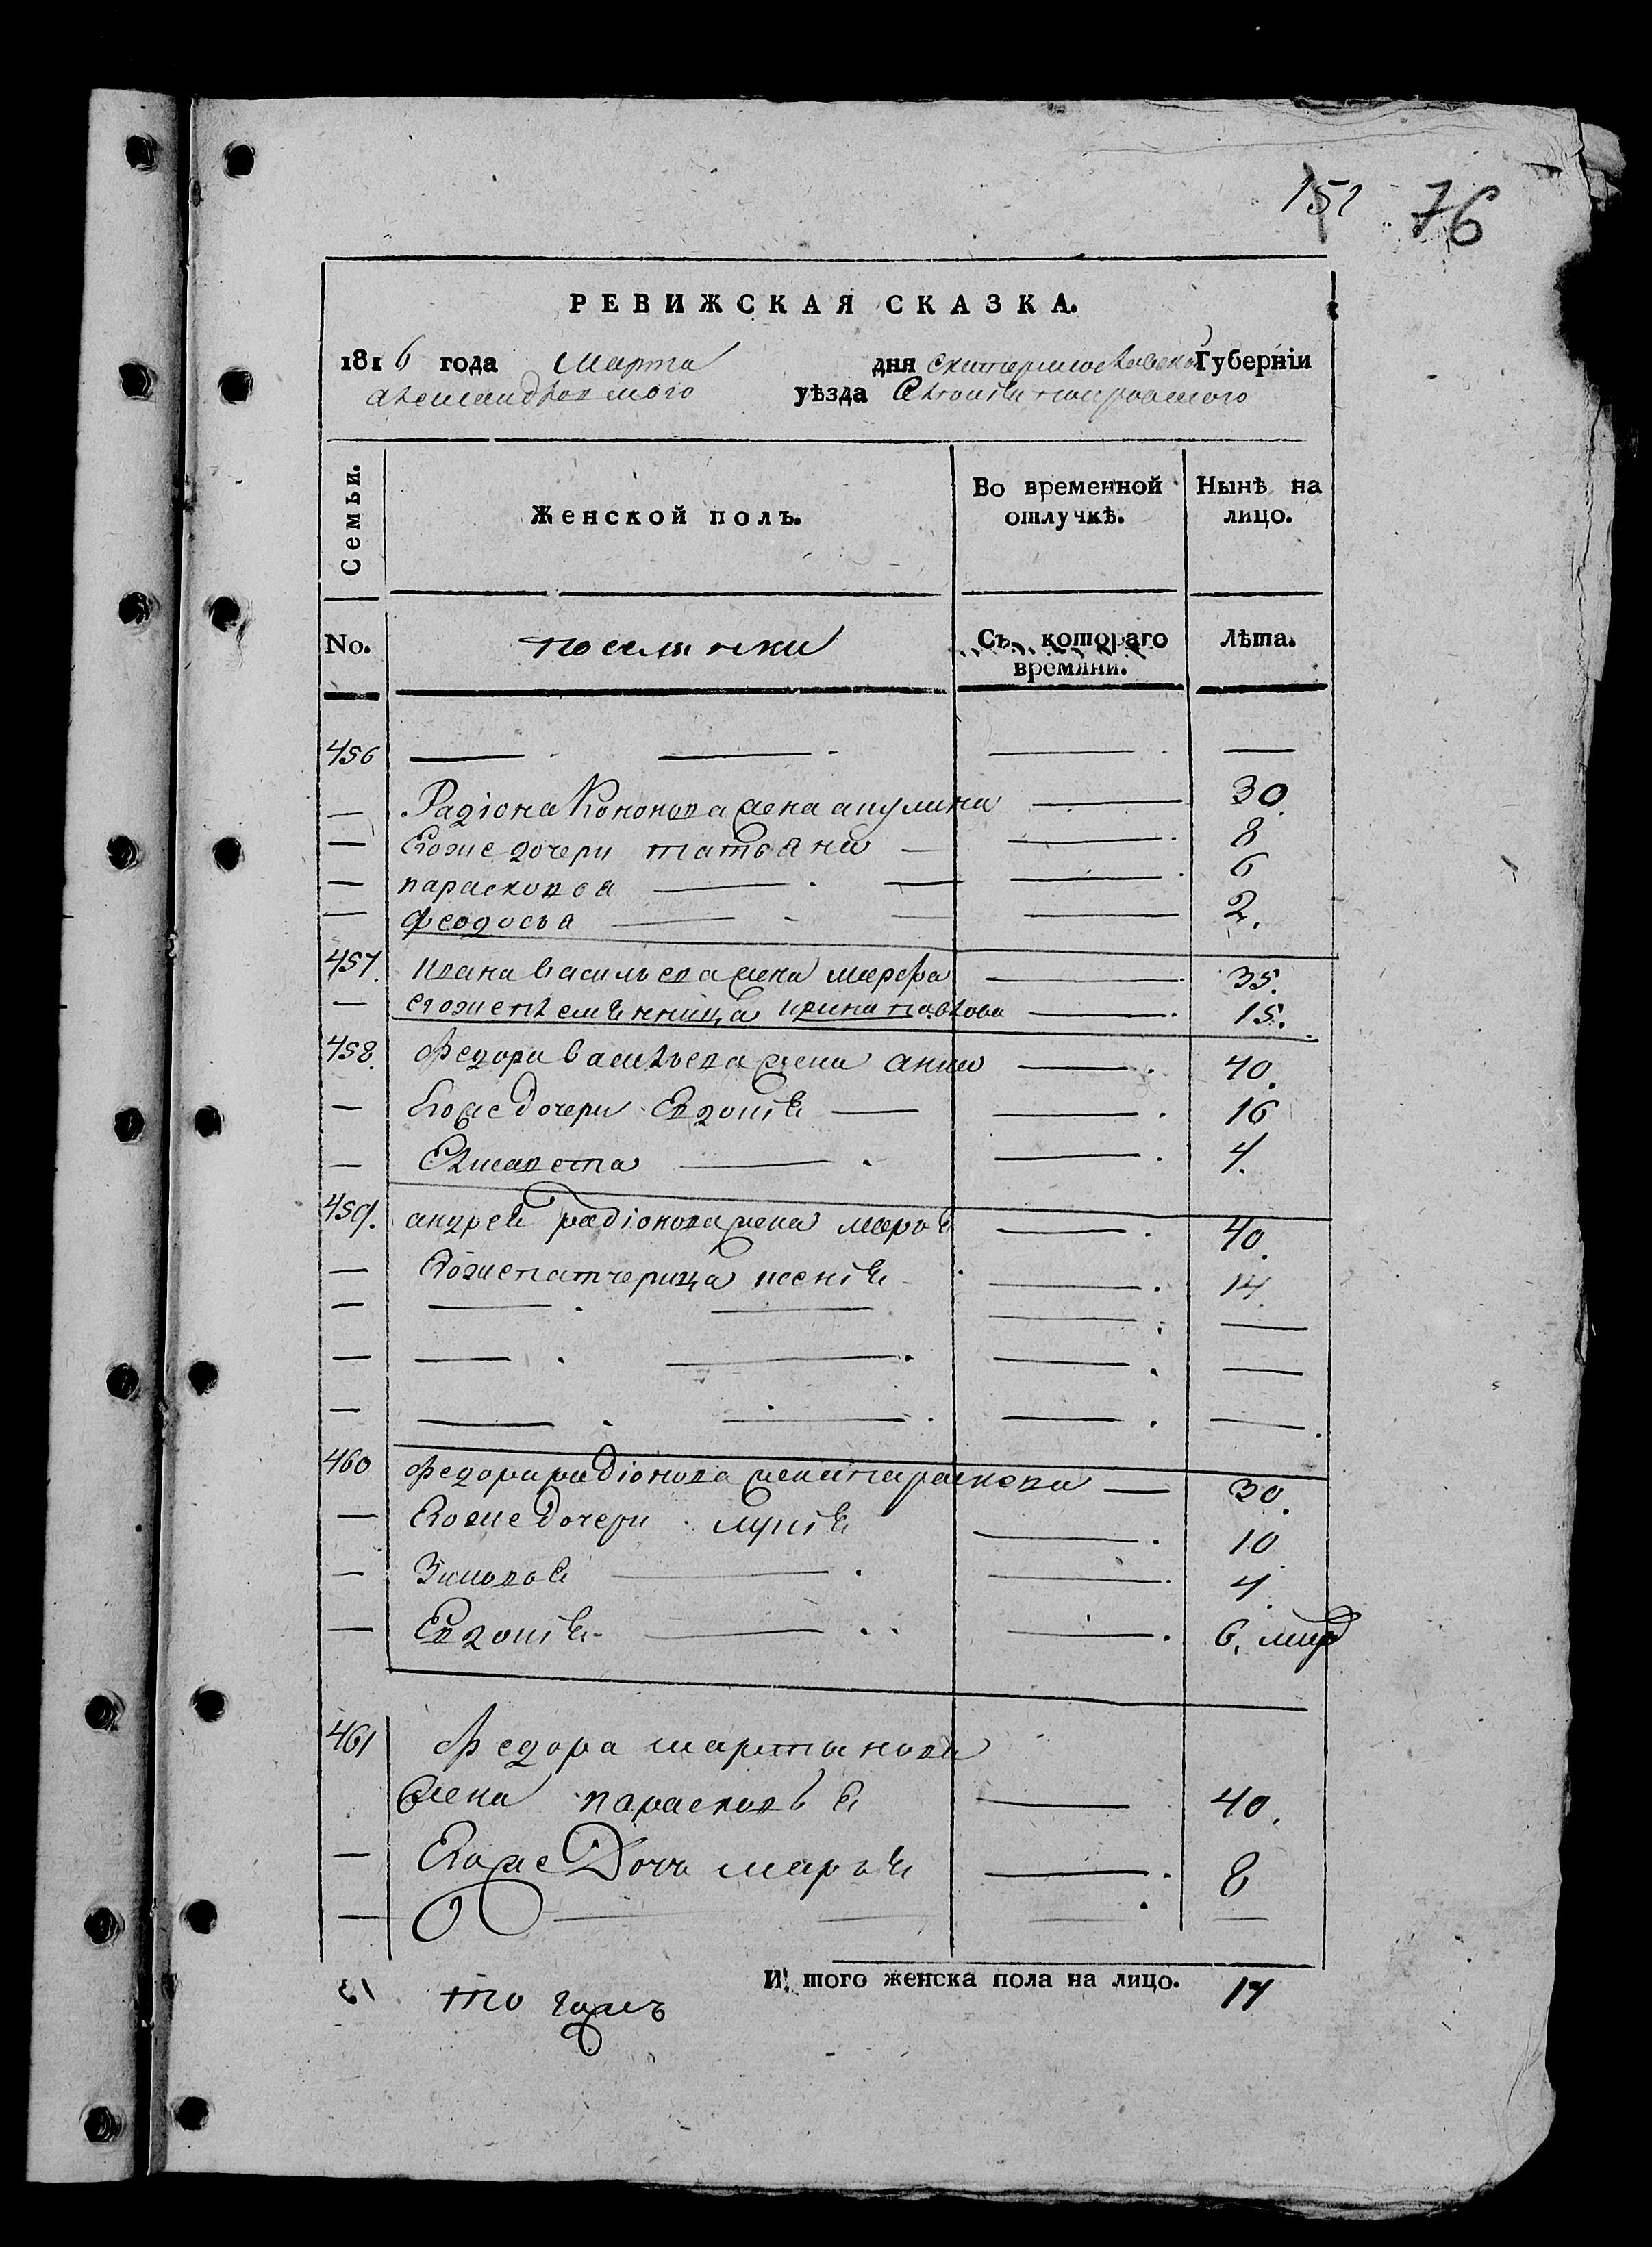 151 76
РЕВИЖСКАЯ СКАЗКА.
1816 года марта дня екатеринославской Губерніи
александровского уѣзда
Семьи.
Женской полъ.
Во временной отлучкѣ.
Нынѣ на лицо.
No.
поселянки
Съ котораго времяни.
Лѣта.
456 — — — —
— Радіона Кононова жена акулина — 30
— Егоже дочери татьяна — 8
— парасковья — 6
— феодосья — 2.
457. ивана васильева жена марфа — 35.
— егоже племенница ирина павлова — 15.
458. федора васильева жена анна — 40.
— Егоже дочери Евдокія — 16
— Елисавета — 4.
459. андрей радіонова жена марья — 40.
— Егоже патчерица ксенія — 14.
— — — — —
— — — — —
— — — — —
460 федора радіонова жена параскева — 30.
— Егоже дочери лукія — 10
— Зиновья — 4.
— Евдокія — 6. мид
461 федора мартинова
жена парасковья — 40.
— Егоже Дочь марья — 8
— — — —
И того женска пола на лицо. 14